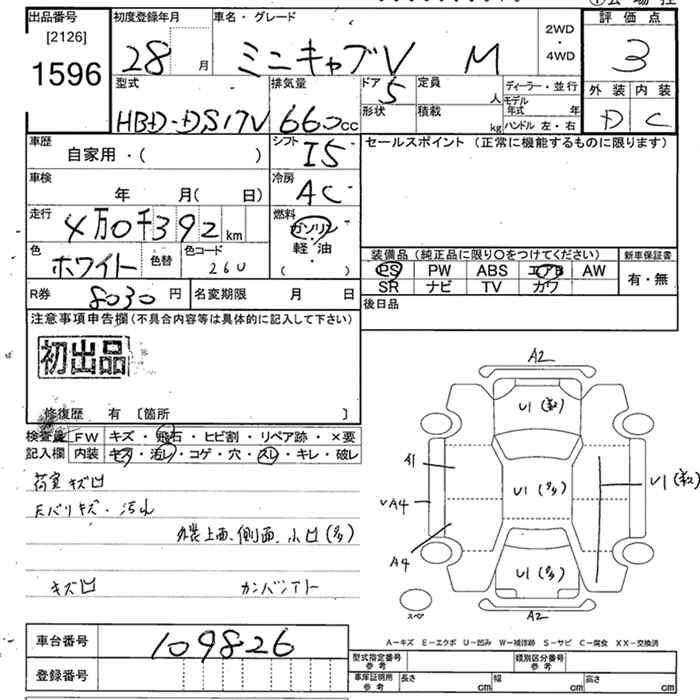 出品番号
[2126]
1596
初度登録年月
28 月
車名・グレード
ミニキャブV M
2WD
・
4WD
評価点
3
外装 内装
D C
型式
HBD-DS17V
排気量
660cc
ドア
5
定員
人
形状
積載
kg
ディーラー・並行
モデル年式 年
ハンドル 左・右
車歴
自家用・( )
シフト
I5
セールスポイント (正常に機能するものに限ります)
車検
年 月( 日)
冷房
AC
走行
4万0千392 km
燃料
ガソリン
軽・油
( ・ )
色
ホワイト
色替
色コード
260
装備品 (純正品に限り○をつけてください)
新車保証書
PS PW ABS エアB AW
SR ナビ TV カワ
有・無
R券
8030 円
名変期限 月 日
後日品
注意事項申告欄(不具合内容等は具体的に記入して下さい)
初出品
修復歴 有 〔箇所 〕
検査員記入欄
FW キズ・飛石・ヒビ割・リペア跡・×要
内装 キズ・汚レ・コゲ・穴・スレ・キレ・破レ
荷室キズ凹
天バリキズ・汚れ
外装上面、側面、小凹(多)
キズ凹
A2
U1
A1
U1(多)
U1
A4
A4
U1(多)
スペア
A2
A-キズ E-エクボ U-凹み W-補修跡 S-サビ C-腐食 XX-交換済
車台番号
109826
登録番号
型式指定番号
参考
類別区分番号
参考
車庫証明用
参考
長さ cm
幅 cm
高さ cm